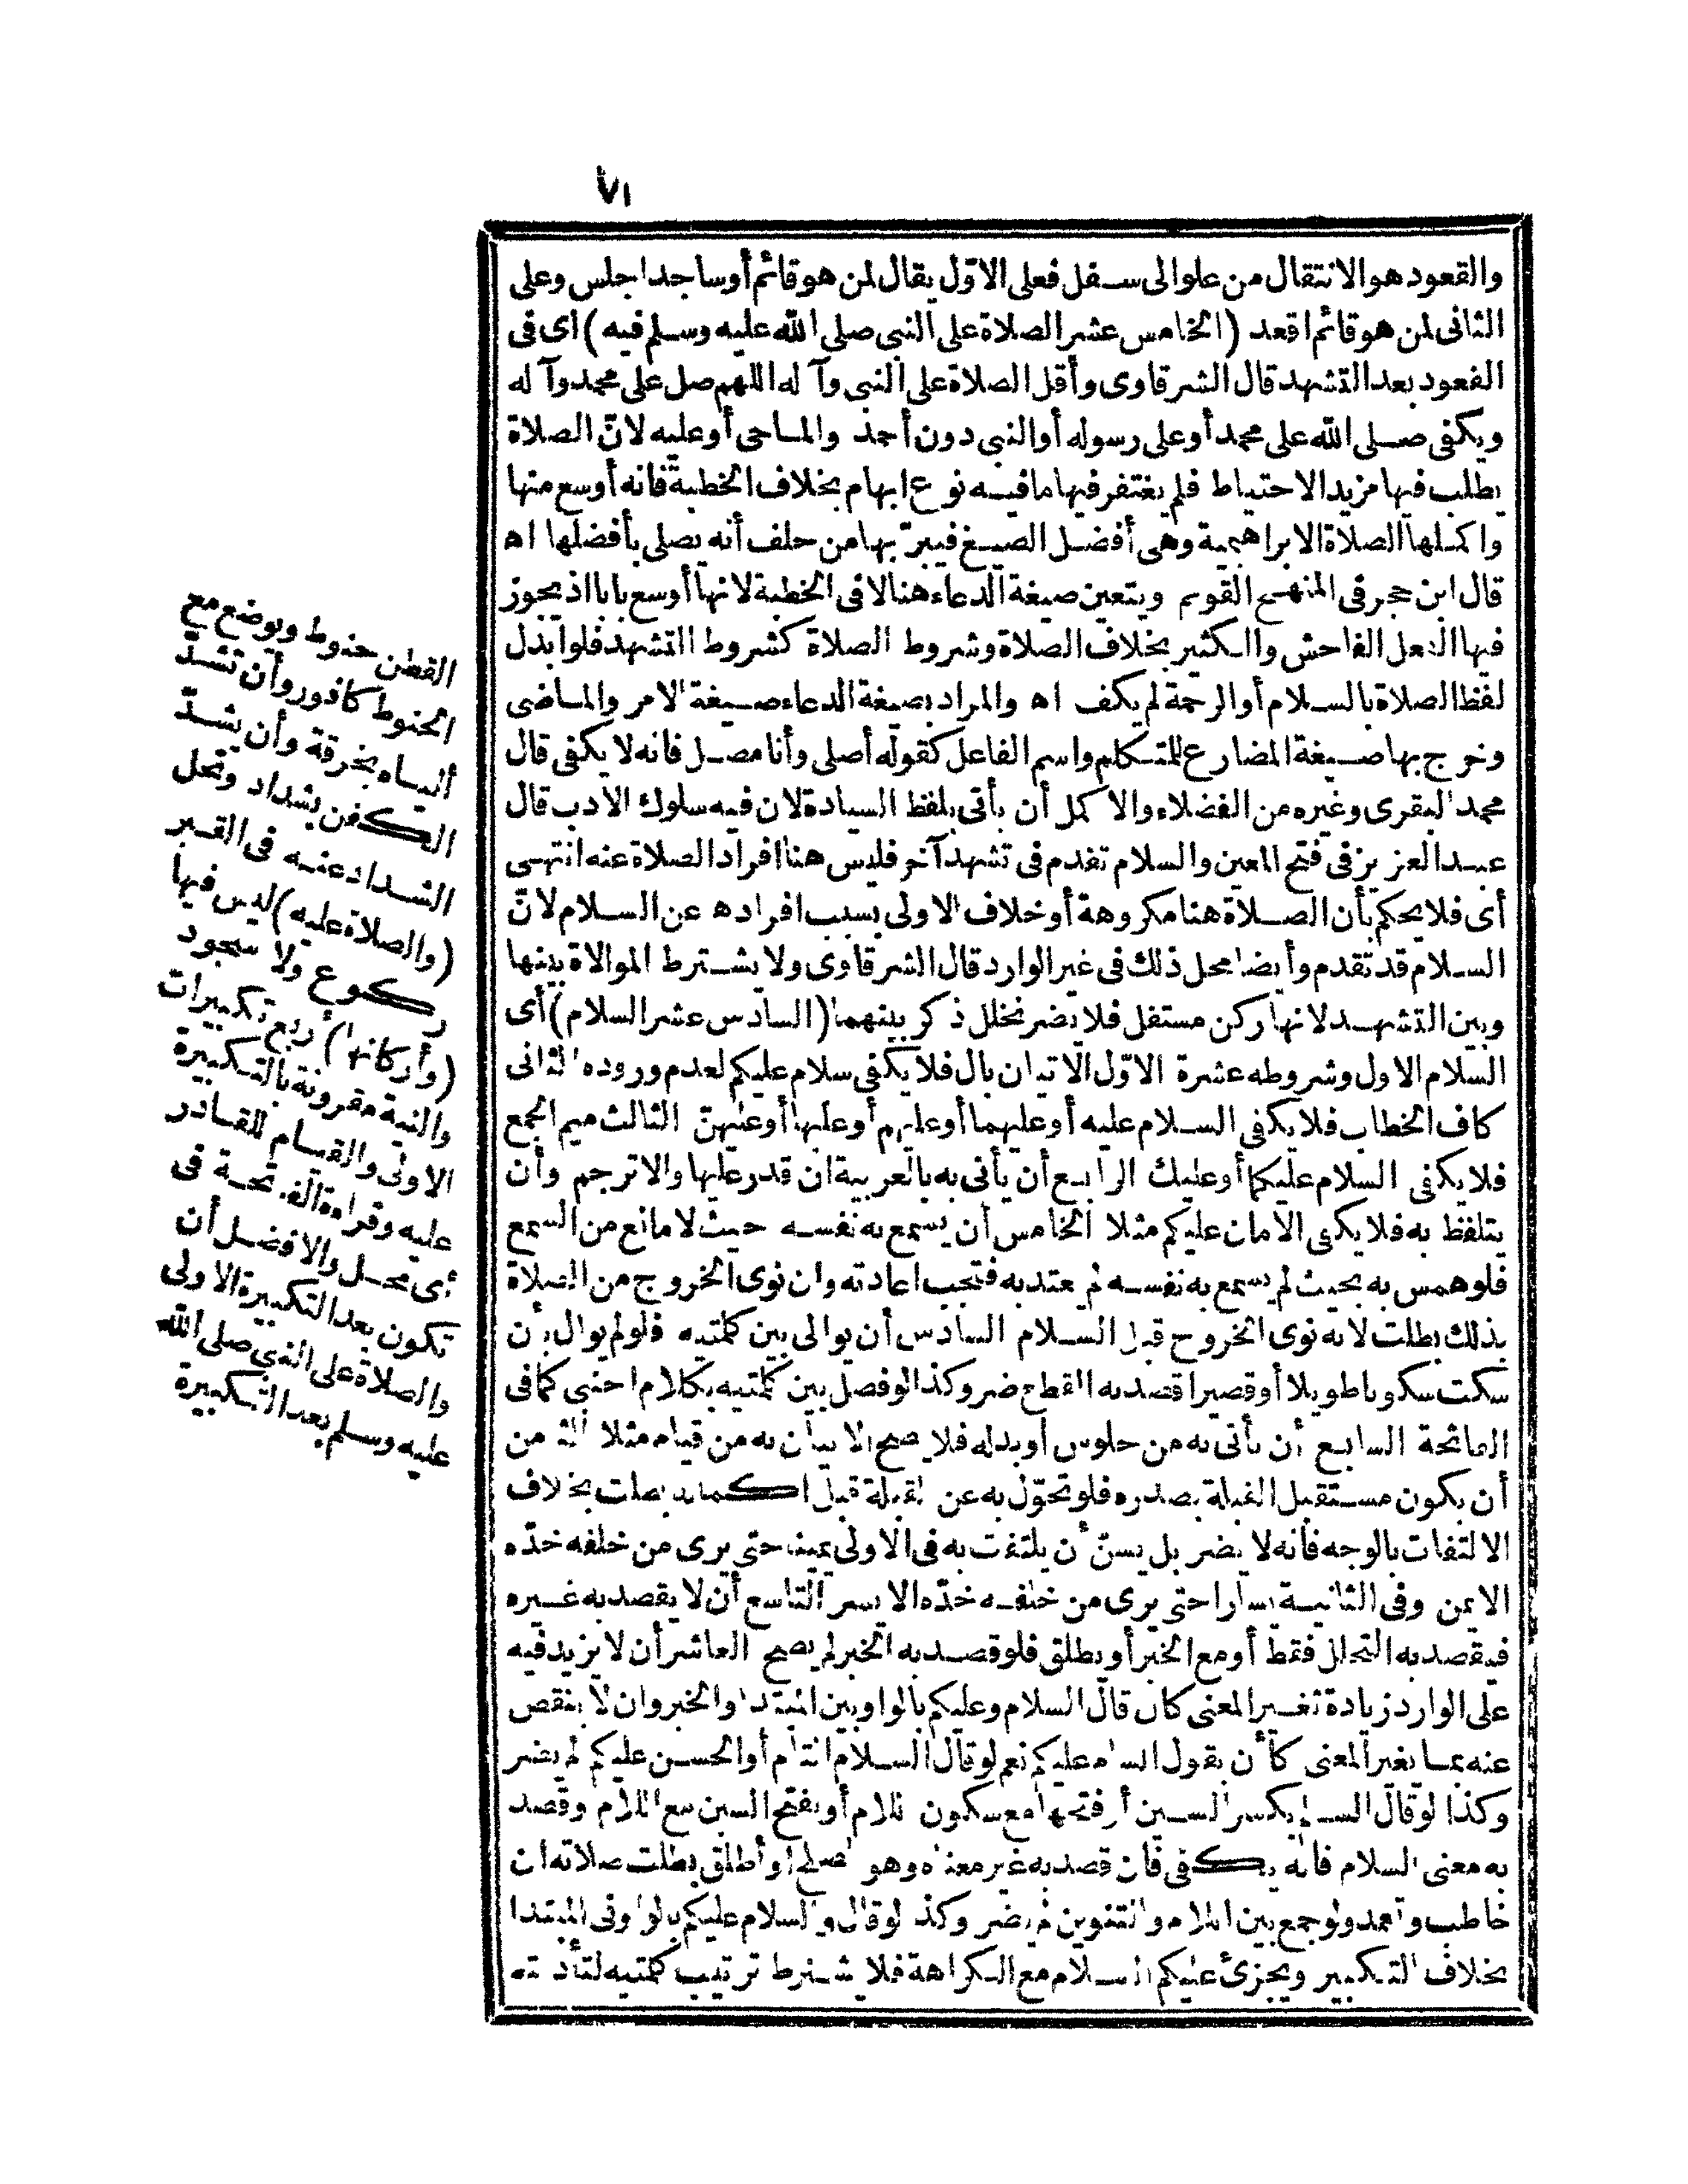 ٧١
والقعود هو الانتقال من علو الى سفل فعلى الاوّل يقال لمن هو قائم أو ساجد اجلس وعلى
الثانى لمن هو قائم اقعد (الخامس عشر الصلاة على النبى صلى الله عليه وسلم فيه) اى فى
القعود بعد التشهد قال الشرقاوى وأقل الصلاة على النبى وآله اللهم صل على محمد وآله
ويكفى صلى الله على محمد أو على رسوله أو النبى دون أحمد والماحى أو عليه لانّ الصلاة
يطلب فيها مزيد الاحتياط فلم يغتفر فيها ما فيه نوع ابهام بخلاف الخطبة فانه أوسع منها
واكملها الصلاة الابراهيمية وهى أفضل الصيغ فيبرّ بها من حلف أنه يصلى بأفضلها اه
قال ابن حجر فى المنهج القويم ويتعين صيغة الدعاء هنا لا فى الخطبة لانها أوسع بابا اذ يجوز
فيها الفعل الفاحش والكثير بخلاف الصلاة وشروط الصلاة كشروط التشهد فلو ابدل
لفظ الصلاة بالسلام أو الرحمة لم يكف اه والمراد بصيغة الدعاء صيغة الامر والماضى
وخرج بها صيغة المضارع للمتكلم واسم الفاعل كقوله أصلى وأنا مصل فانه لا يكفى قال
محمد البقرى وغيره من الفضلاء والاكمل أن يأتى بلفظ السيادة لان فيه سلوك الادب قال
عبد العزيز فى فتح المعين والسلام تقدم فى تشهد آخر فليس هنا افراد الصلاة عنه انتهى
أى فلا يحكم بأن الصلاة هنا مكروهة أو خلاف الاولى بسبب افراده عن السلام لانّ
السلام قد تقدم وأيضا محل ذلك فى غير الوارد قال الشرقاوى ولا يشترط الموالاة بينها
وبين التشهد لانها ركن مستقل فلا يضر تخلل ذكر بينهما (السادس عشر السلام) أى
السلام الاول وشروطه عشرة الاوّل الاتيان بال فلا يكفى سلام عليكم لعدم وروده الثانى
كاف الخطاب فلا يكفى السلام عليه أو عليهما أو عليهم أو عليها أو عليهنّ الثالث ميم الجمع
فلا يكفى السلام عليكما أو عليك الرابع أن يأتى به بالعربية ان قدر عليها والا ترجم وأن
يتلفظ به فلا يكفى الامان عليكم مثلا الخامس أن يسمع به نفسه حيث لا مانع من السمع
فلو همس به بحيث لم يسمع به نفسه لم يعتد به فتجب اعادته وان نوى الخروج من الصلاة
بذلك بطلت لانه نوى الخروج قبل السلام السادس أن يوالى بين كلمتيه فلو لم يوال بأن
سكت سكوتا طويلا أو قصيرا قصد به القطع ضر وكذا لو فصل بين كلمتيه بكلام اجنبى كما فى
الفاتحة السابع أن يأتى به من جلوس أو بدله فلا يصح الاتيان به من قيام مثلا الثامن
أن يكون مستقبل القبلة بصدره فلو تحوّل به عن القبلة قبل اكماله بطلت بخلاف
الالتفات بالوجه فانه لا يضر بل يسنّ أن يلتفت به فى الاولى يمينا حتى يرى من خلفه خدّه
الايمن وفى الثانية يسارا حتى يرى من خلفه خدّه الايسر التاسع أن لا يقصد به غيره
فيقصد به التحلل فقط أو مع الخبر أو يطلق فلو قصد به الخبر لم يصح العاشر أن لا يزيد فيه
على الوارد زيادة تغير المعنى كان قال السلام وعليكم بالواو بين المبتدا والخبر وان لا ينقص
عنه بما يغير المعنى كأن يقول السام عليكم نعم لو قال السلام التام أو الحسن عليكم لم يضر
وكذا لو قال السلم بكسر السين أو فتحها مع سكون اللام أو بفتح السين مع اللام وقصد
به معنى السلام فانه يكفى فان قصد به غير معناه وهو الصلح أو أطلق بطلت صلاته ان
خاطب وتعمد ولو جمع بين اللام والتنوين لم يضر وكذا لو قال والسلام عليكم بالواو فى المبتدا
بخلاف التكبير ويجزئ عليكم السلام مع الكراهة فلا يشترط ترتيب كلمتيه لتأديته
القطن حنوط ويوضع مع
الحنوط كافور وأن تشدّ
ألياه بخرقة وأن يشدّ
الكفن بشداد وتحل
الشداد عنه فى القبر
(والصلاة عليه) ليس فيها
ركوع ولا سجود
(وأركانها) أربع تكبيرات
والنية مقرونة بالتكبيرة
الاولى والقيام للقادر
عليه وقراءة الفاتحة فى
أى محل والافضل أن
تكون بعد التكبيرة الاولى
والصلاة على النبى صلى الله
عليه وسلم بعد التكبيرة